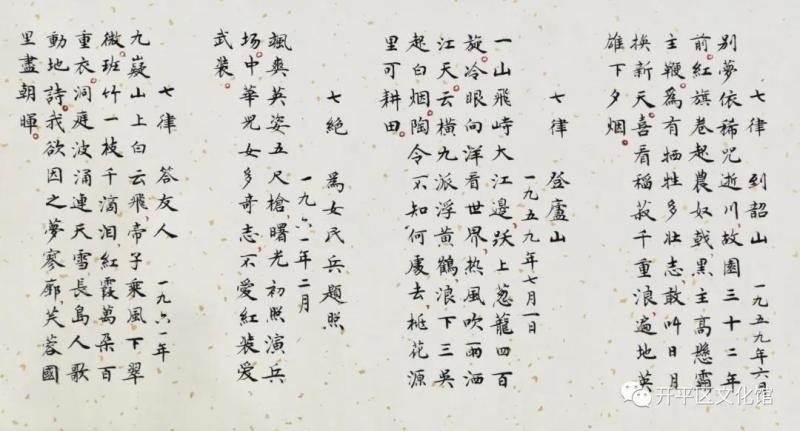 七律 到韶山 一九五九年六月
别夢依稀咒逝川故園三十二年
前紅旗卷起農奴戟黑手高懸霸
主鞭為有牺牲多壮志敢叫日月
换新天喜看稻菽千重浪遍地英
雄下夕烟
七律 登廬山
一九五九年七月一日
一山飛峙大江邊跃上葱蘢四百
旋冷眼向洋看世界热風吹雨洒
江天云横九派浮黄鶴浪下三吳
起白烟陶令不知何處去桃花源
里可耕田
七絶 為女民兵題照
一九六一年二月
颯爽英姿五尺槍曙光初照演兵
场中華兒女多奇志不爱紅裝爱
武裝
七律 答友人 一九六一年
九嶷山上白云飛帝子乘風下翠
微班竹一枝千滴泪紅霞萬朵百
重衣洞庭波涌連天雪長島人歌
動地詩我欲因之夢寥廓芙蓉國
里盡朝暉
开平区文化馆